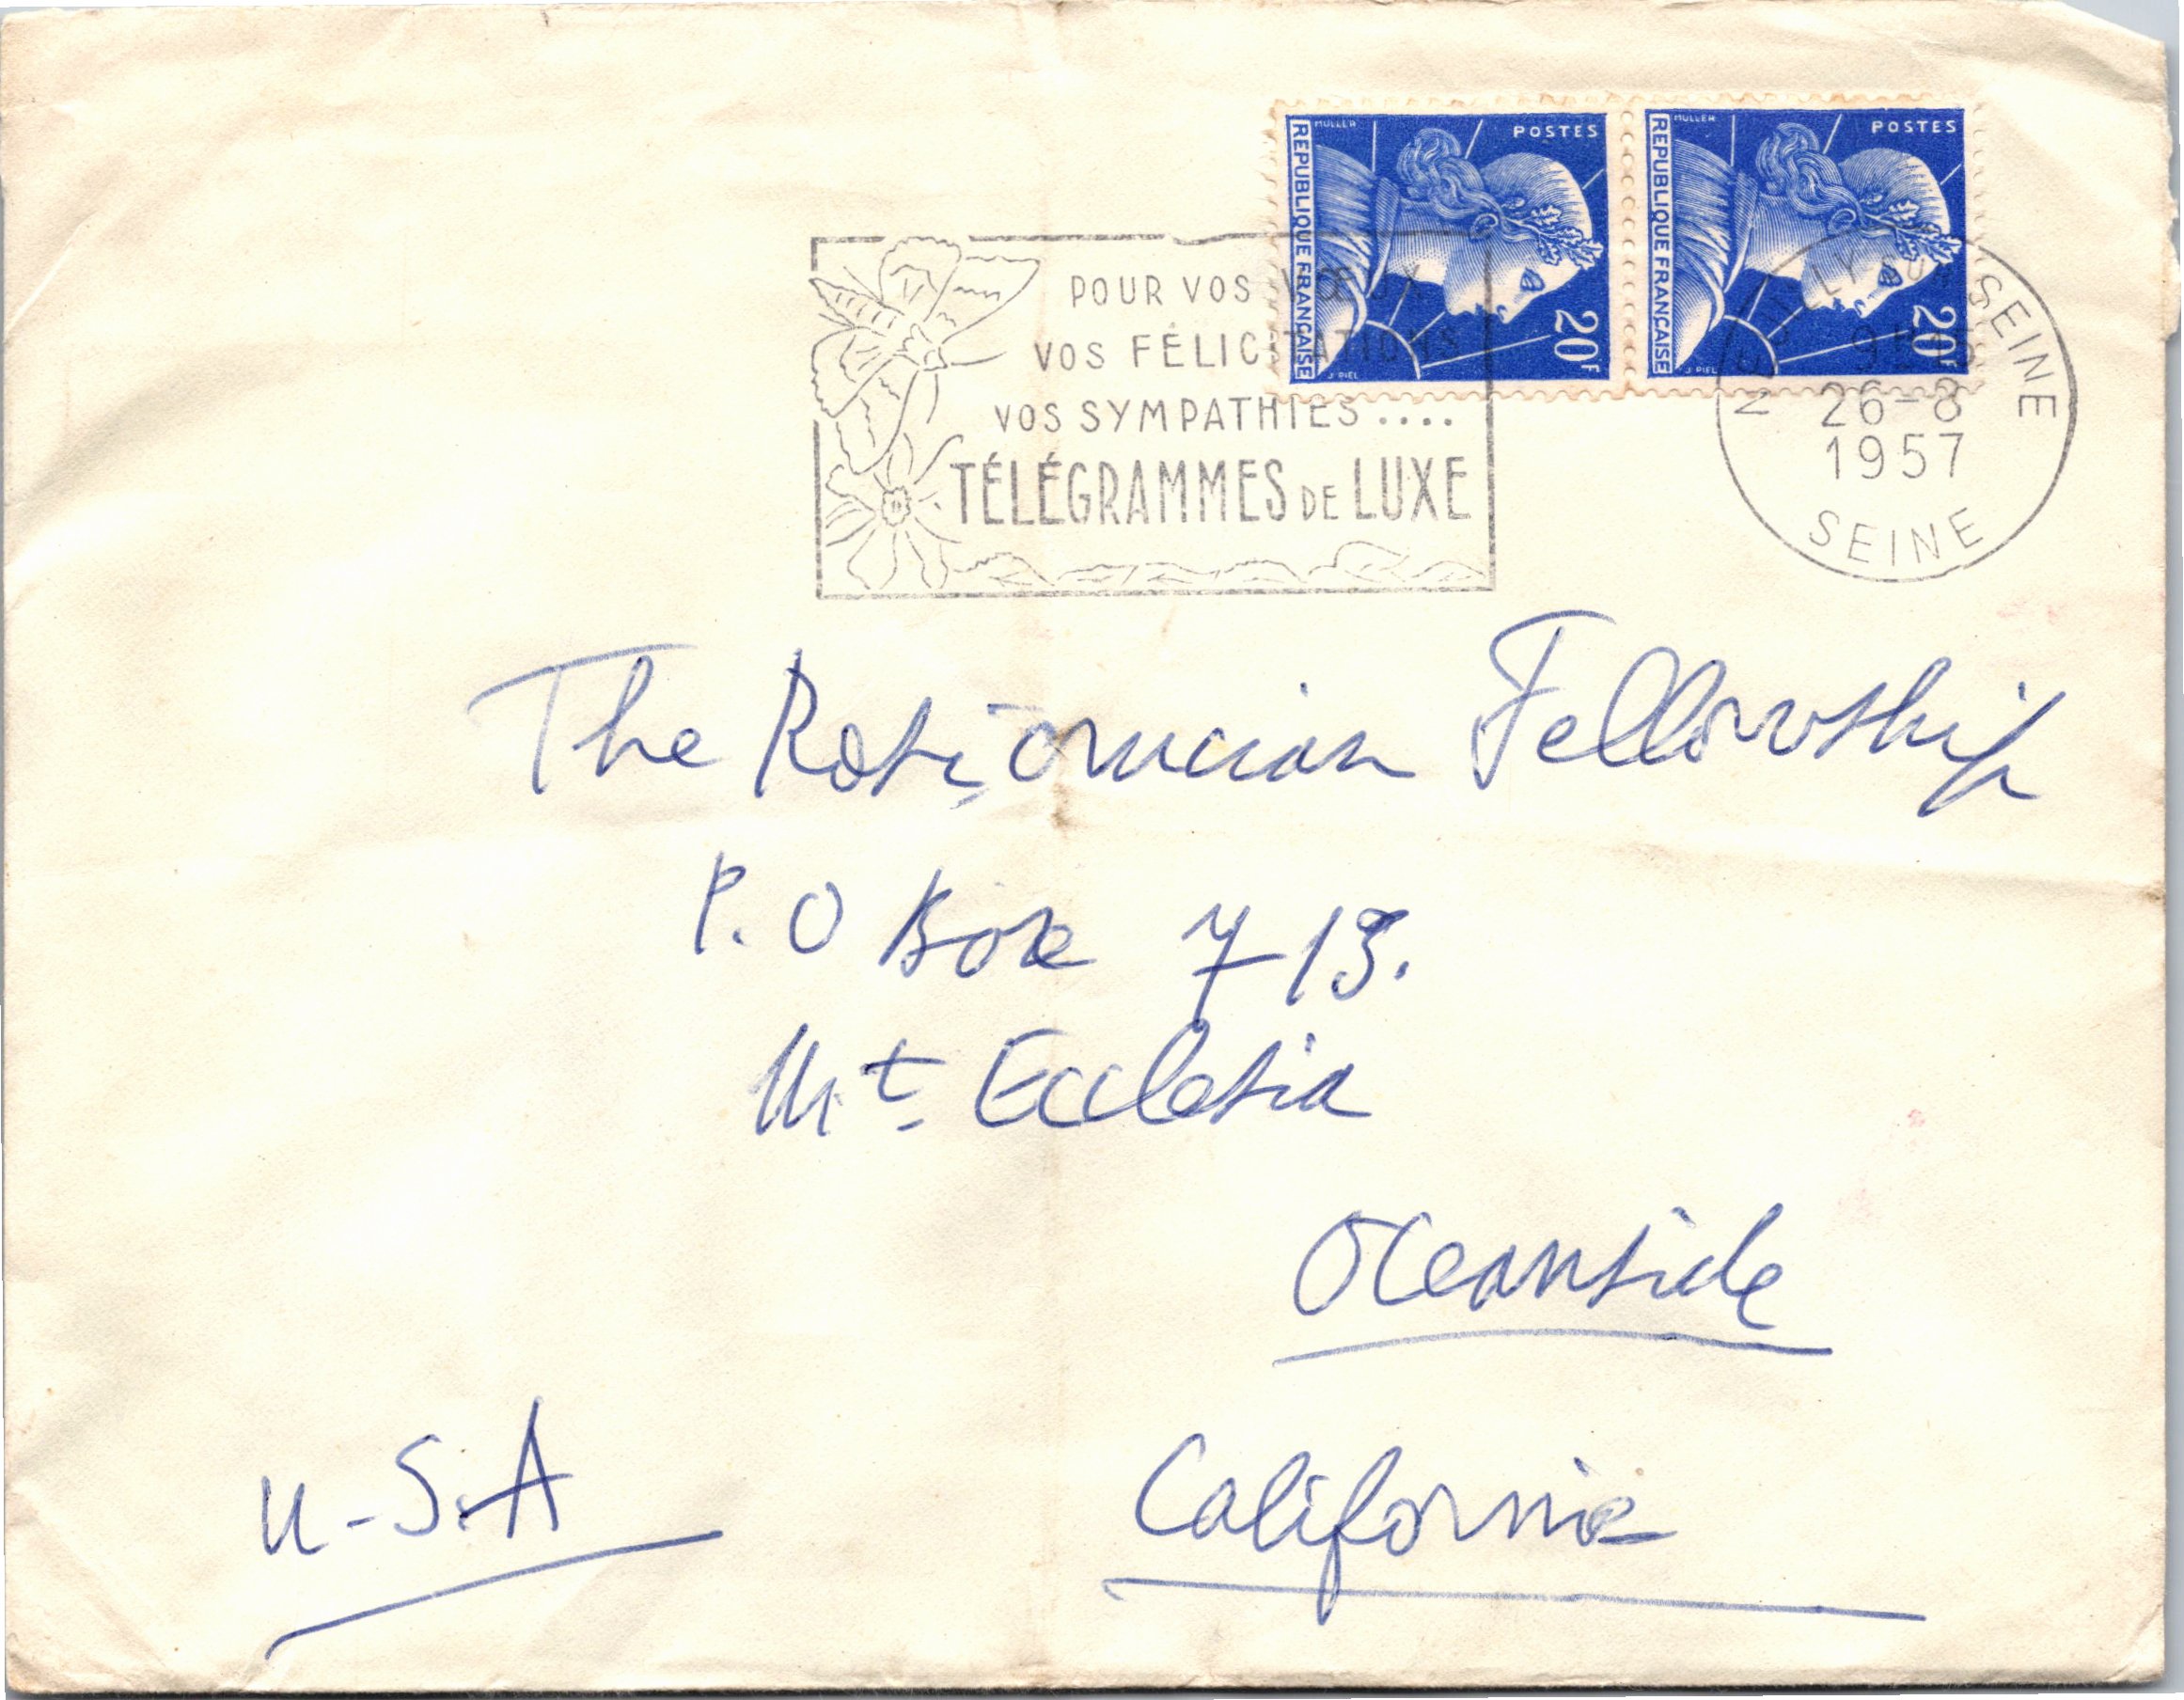 MULLER POSTES
REPUBLIQUE FRANÇAISE
20F
J. PIEL
MULLER POSTES
REPUBLIQUE FRANÇAISE
20F
J. PIEL
POUR VOS VŒUX
VOS FÉLICITATIONS
VOS SYMPATHIES ....
TÉLÉGRAMMES DE LUXE
NEUILLY SUR SEINE
26-8
1957
SEINE
The Rosicrucian Fellowship
P.O Box 713.
Mt Ecclesia
Oceanside
U-S.A
California